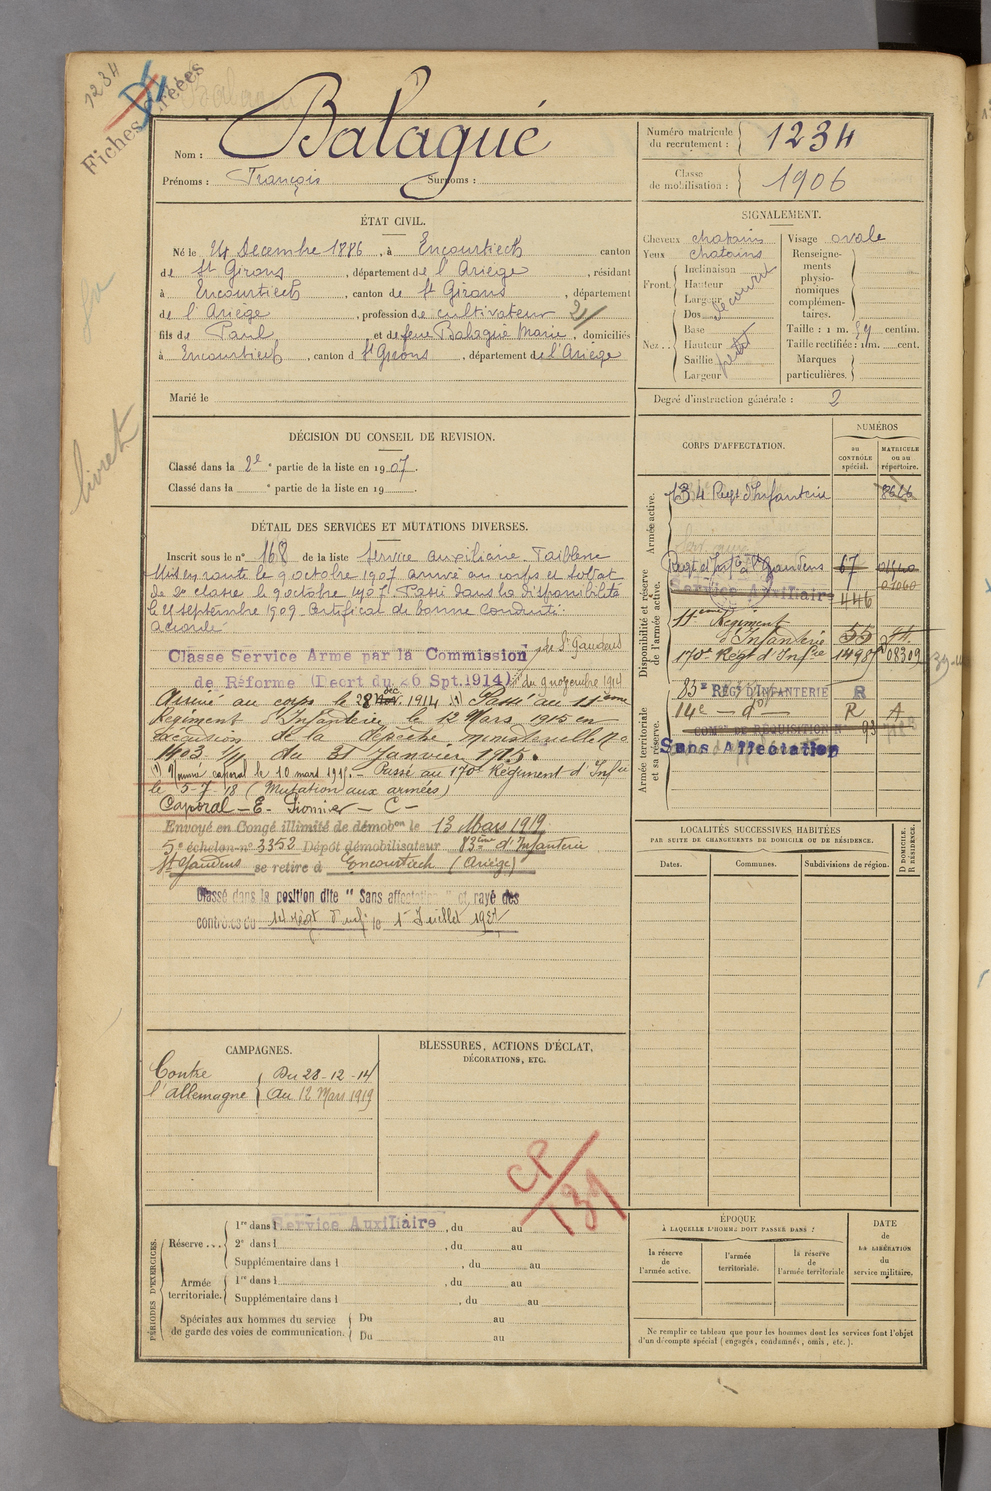 1234
Fiches
Nom : Balagué
Prénoms : François Surnoms :
Numéro matricule du recrutement : 1234
Classe de mobilisation : 1906
ÉTAT CIVIL.
Né le 24 Decembre 1886, à Encourtiech canton
de St Girons, département de l'Ariège, résidant
à Encourtiech, canton de St Girons, département
de l'Ariège, profession de cultivateur 21
fils de Paul et de feue Balagué Marie, domiciliés
à Encourtiech, canton d St Girons, département de l'Ariège
Marié le
SIGNALEMENT.
Cheveux chatains
Yeux chatains
Front Inclinaison
Hauteur
Largeur
découvert
Nez Dos
Base
Hauteur
Saillie
Largeur
petit
Visage ovale
Renseignements physionomiques complémentaires.
Taille : 1 m. 59 centim.
Taille rectifiée : 1m. cent.
Marques particulières.
Degré d'instruction générale : 2
livret
DÉCISION DU CONSEIL DE REVISION.
Classé dans la 2e partie de la liste en 1907.
Classé dans la e partie de la liste en 19 .
DÉTAIL DES SERVICES ET MUTATIONS DIVERSES.
Inscrit sous le n° 168 de la liste Service auxiliaire. Faiblesse
Mis en route le 9 octobre 1907 arrivé au corps et soldat
de 2e classe le 9 octobre 1907. Passé dans la disponibilité
le 21 septembre 1909. Certificat de bonne conduite
accordé
Classe Service Armé par la Commission de St Gaudens
de Réforme (Décrt du 26 Spt.1914) du 9 novembre 1914
Arrivé au corps le 28 dec 1914 (1) Passé au 11eme
Régiment d'Infanterie le 12 Mars 1915 en
exécution de la dépêche ministerielle No
1403 1/11 du 31 Janvier 1915.
(1) Nommé caporal le 10 mars 191 . - Passé au 170e Régiment d'Infie
le 5-7-18 (Mutation aux armées)
Caporal - E - Pionnier - C -
Envoyé en Congé illimité de démobon le 13 Mars 1919
5e échelon n° 3352 Dépôt démobilisateur 83ème d'Infanterie
St Gaudens se retire à Encourtiech (Ariège)
Classé dans la position dite " Sans affectation " et rayé des
contrôles du 14e régt d'inf. le 1er Juillet 192
CORPS D'AFFECTATION.
NUMÉROS
au CONTRÔLE spécial.
MATRICULE ou au répertoire.
Armée active.
134 Regt d'Infanterie 8646
Disponibilité et réserve de l'armée active.
Regt d'Infie à St Gaudens 67
Service Auxiliaire 446 01060
11eme Régiment d'Infanterie 55
170e Régt d'Infie 14987 08309
Armée territoriale et sa réserve.
83e REGt D'INFANTERIE R
14e - do - R A
COMMon DE RÉQUISITION N° 93
Sans Affectation
LOCALITÉS SUCCESSIVES HABITÉES
PAR SUITE DE CHANGEMENTS DE DOMICILE OU DE RÉSIDENCE.
Dates. Communes. Subdivisions de région.
D DOMICILE. R RÉSIDENCE.
CAMPAGNES.
Contre l'allemagne Du 28-12-14
au 12 Mars 1919
BLESSURES, ACTIONS D'ÉCLAT,
DÉCORATIONS, ETC.
CP/139
PÉRIODES D'EXERCICES.
Réserve... 1re dans l Service Auxiliaire, du au
2e dans l , du au
Supplémentaire dans l , du au
Armée territoriale. 1re dans l , du au
Supplémentaire dans l , du au
Spéciales aux hommes du service de garde des voies de communication. Du au
Du au
ÉPOQUE
À LAQUELLE L'HOMME DOIT PASSER DANS :
la réserve de l'armée active.
l'armée territoriale.
la réserve de l'armée territoriale
DATE de LA LIBÉRATION du service militaire.
Ne remplir ce tableau que pour les hommes dont les services font l'objet
d'un décompte spécial (engagés, condamnés, omis, etc.).